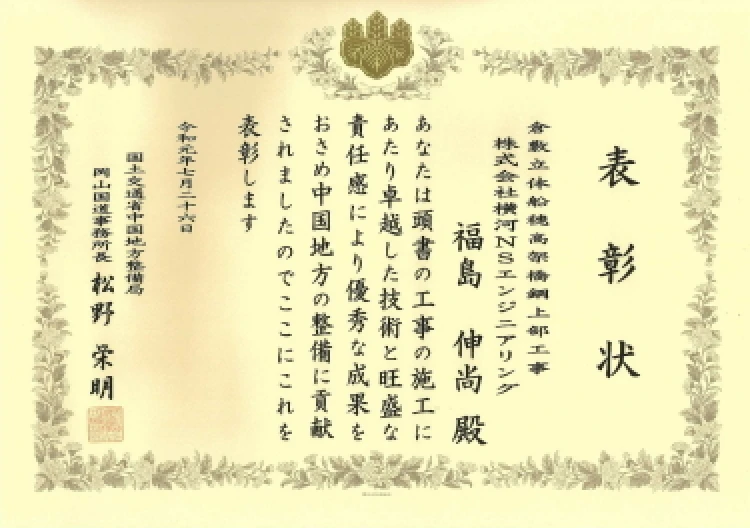 表彰状
倉敷立体船穂高架橋鋼上部工事
株式会社横河NSエンジニアリング
福島 伸尚 殿
あなたは頭書の工事の施工に
あたり卓越した技術と旺盛な
責任感により優秀な成果を
おさめ中国地方の整備に貢献
されましたのでここにこれを
表彰します
令和元年七月二十六日
国土交通省中国地方整備局
岡山国道事務所長 松野 栄明